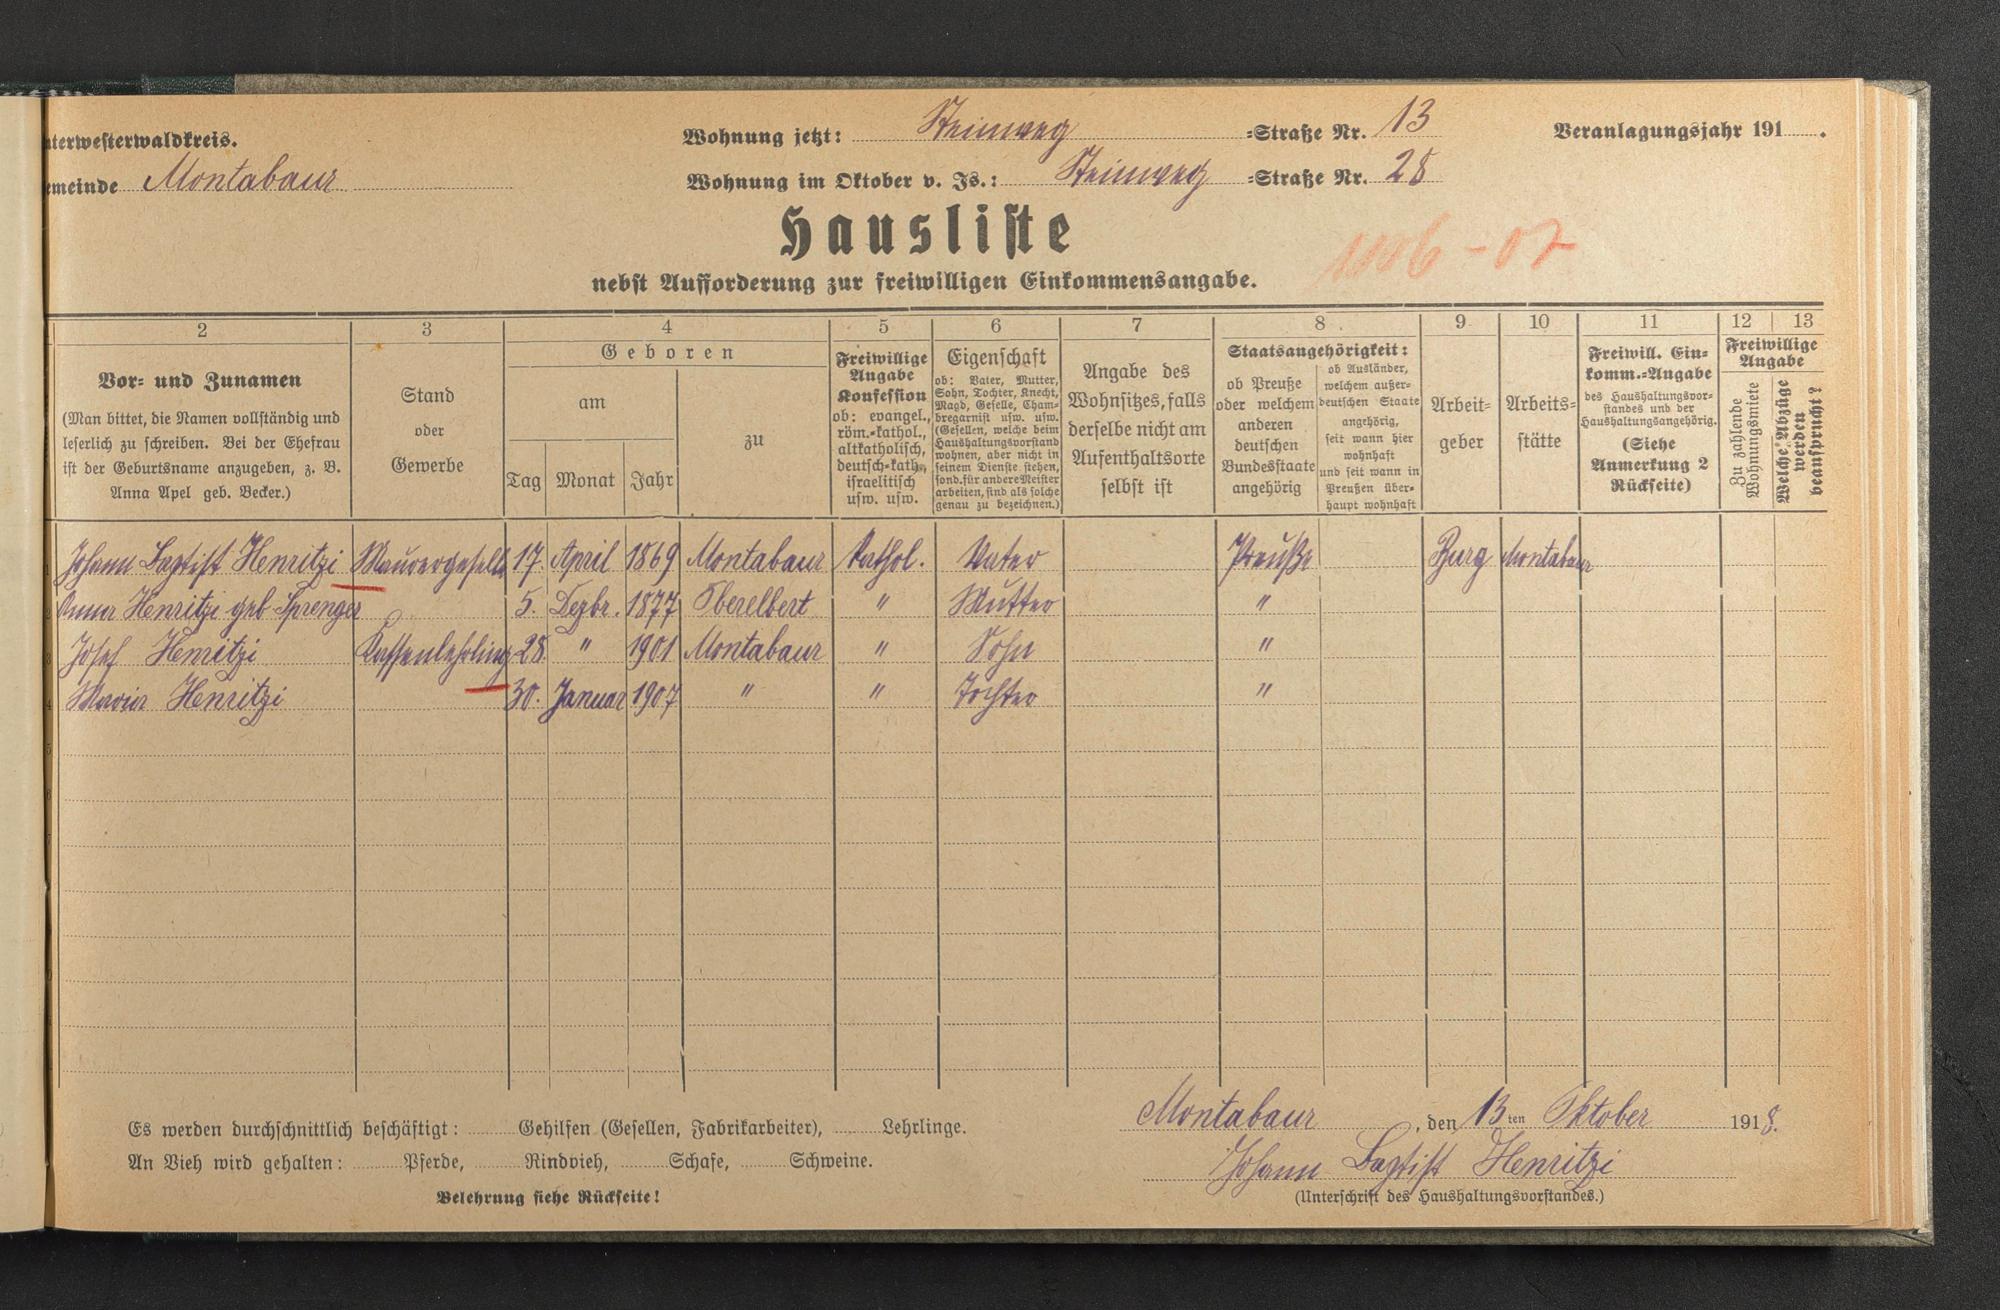 nterwesterwaldkreis.
emeinde Montabaur
Wohnung jetzt: Steinweg =Straße Nr. 13
Veranlagungsjahr 191 .
Wohnung im Oktober v. Js.: Steinweg =Straße Nr. 28
Hausliste
1106-07
nebst Aufforderung zur freiwilligen Einkommensangabe.
2 3 4 5 6 7 8 9 10 11 12 13
Vor- und Zunamen
(Man bittet, die Namen vollständig und
leserlich zu schreiben. Bei der Ehefrau
ist der Geburtsname anzugeben, z. B.
Anna Apel geb. Becker.)
Stand
oder
Gewerbe
Geboren
am
Tag Monat Jahr
zu
Freiwillige
Angabe
Konfession
ob: evangel.,
röm.-kathol.,
altkatholisch,
deutsch-kath.,
israelitisch
usw. usw.
Eigenschaft
ob: Vater, Mutter,
Sohn, Tochter, Knecht,
Magd, Geselle, Cham-
bregarnist usw. usw.
(Gesellen, welche beim
Haushaltungsvorstand
wohnen, aber nicht in
seinem Dienste stehen,
sond. für andere Meister
arbeiten, sind als solche
genau zu bezeichnen.)
Angabe des
Wohnsitzes, falls
derselbe nicht am
Aufenthaltsorte
selbst ist
Staatsangehörigkeit:
ob Preuße
oder welchem
anderen
deutschen
Bundesstaate
angehörig
ob Ausländer,
welchem außer-
deutschen Staate
angehörig,
seit wann hier
wohnhaft
und seit wann in
Preußen über-
haupt wohnhaft
Arbeit-
geber
Arbeits-
stätte
Freiwill. Ein-
komm.-Angabe
des Haushaltungsvor-
standes und der
Haushaltungsangehörig.
(Siehe
Anmerkung 2
Rückseite)
Freiwillige
Angabe
Zu zahlende
Wohnungsmiete
Welche Abzüge
werden
beansprucht?
Johann Baptist Henritzi Maurergeselle 17. April 1869 Montabaur Kathol. Vater Preuße Burg Montabaur
Anna Henritzi geb Sprenger 5. Dezbr. 1877 Oberelbert " Mutter "
Josef Henritzi Kassenlehrling 28 " 1901 Montabaur " Sohn "
Maria Henritzi 30. Januar 1907 " " Tochter "
Es werden durchschnittlich beschäftigt: Gehilfen (Gesellen, Fabrikarbeiter), Lehrlinge.
An Vieh wird gehalten: Pferde, Rindvieh, Schafe, Schweine.
Belehrung siehe Rückseite!
Montabaur, den 13ten Oktober 1918.
Johann Baptist Henritzi
(Unterschrift des Haushaltungsvorstandes.)